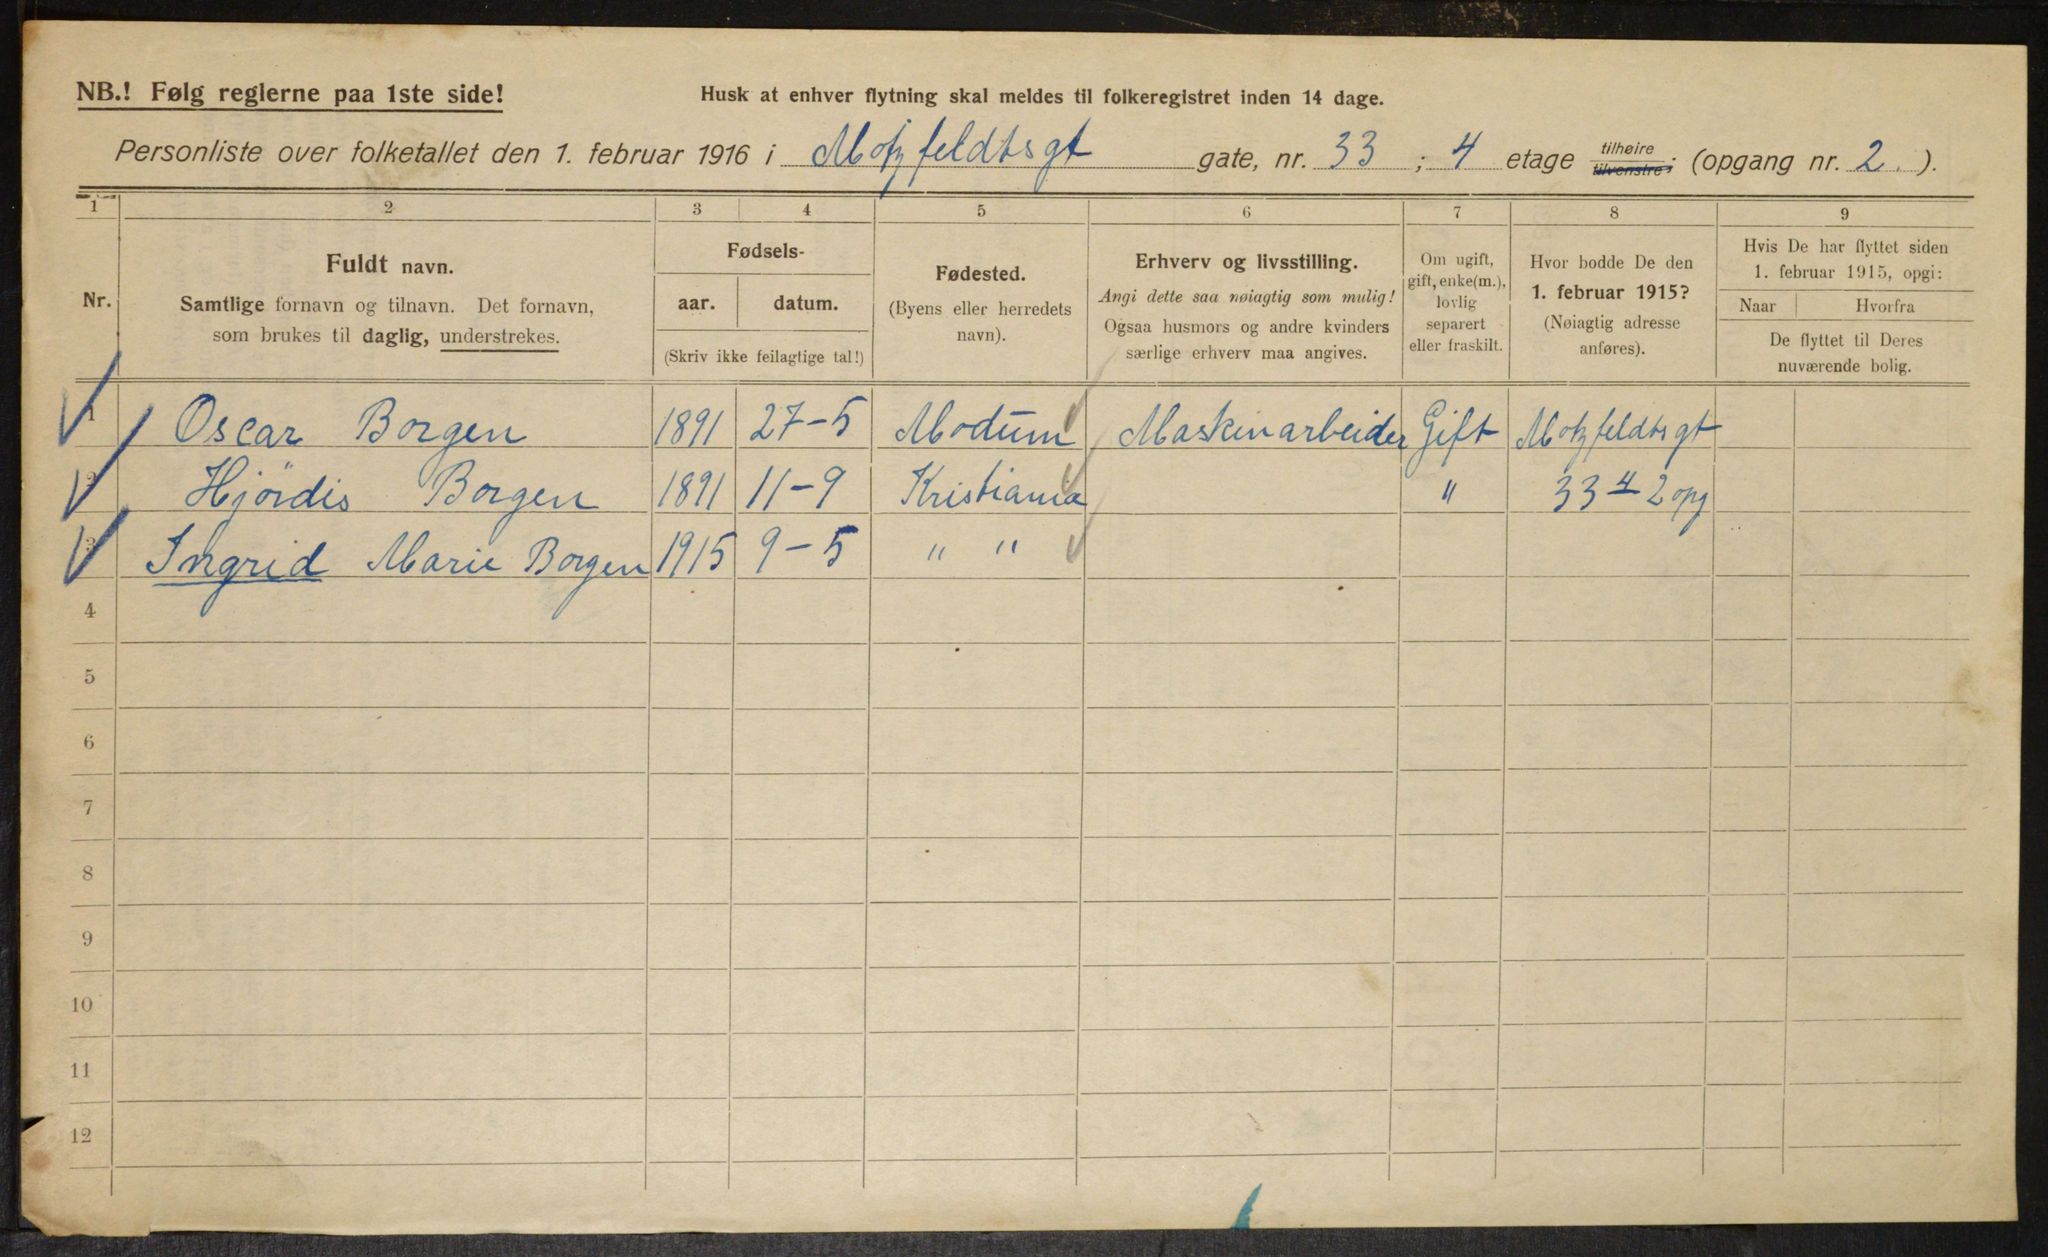 NB.! Følg reglerne paa 1ste side!
Husk at enhver flytning skal meldes til folkeregistret inden 14 dage.
Personliste over folketallet den 1. februar 1916 i Motzfeldtsgt gate, nr. 33 ; 4 etage tilhøire tilvenstre; (opgang nr. 2. ).
1 2 3 4 5 6 7 8 9
Nr.
Fuldt navn.
Samtlige fornavn og tilnavn. Det fornavn,
som brukes til daglig, understrekes.
Fødsels-
aar. datum.
(Skriv ikke feilagtige tal!)
Fødested.
(Byens eller herredets
navn).
Erhverv og livsstilling.
Angi dette saa nøiagtig som mulig!
Ogsaa husmors og andre kvinders
særlige erhverv maa angives.
Om ugift,
gift, enke(m.),
lovlig
separert
eller fraskilt.
Hvor bodde De den
1. februar 1915?
(Nøiagtig adresse
anføres).
Hvis De har flyttet siden
1. februar 1915, opgi:
Naar Hvorfra
De flyttet til Deres
nuværende bolig.
1 Oscar Borgen 1891 27-5 Modum Maskinarbeider Gift Motzfeldtsgt
2 Hjördis Borgen 1891 11-9 Kristiania " 33 4 2 opg
3 Ingrid Marie Borgen 1915 9-5 " "
4
5
6
7
8
9
10
11
12